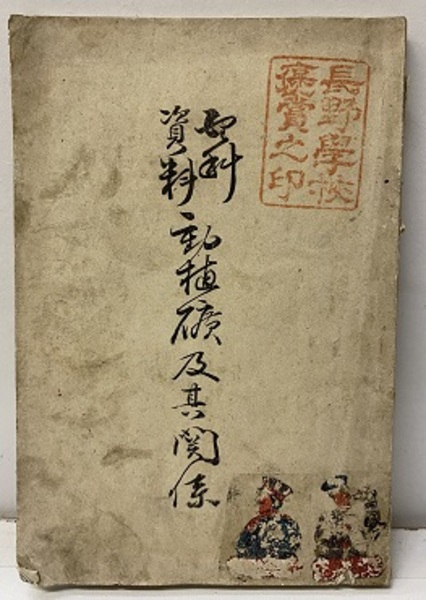 長野學校
褒賞之印
理科
資料
動植礦及其関係